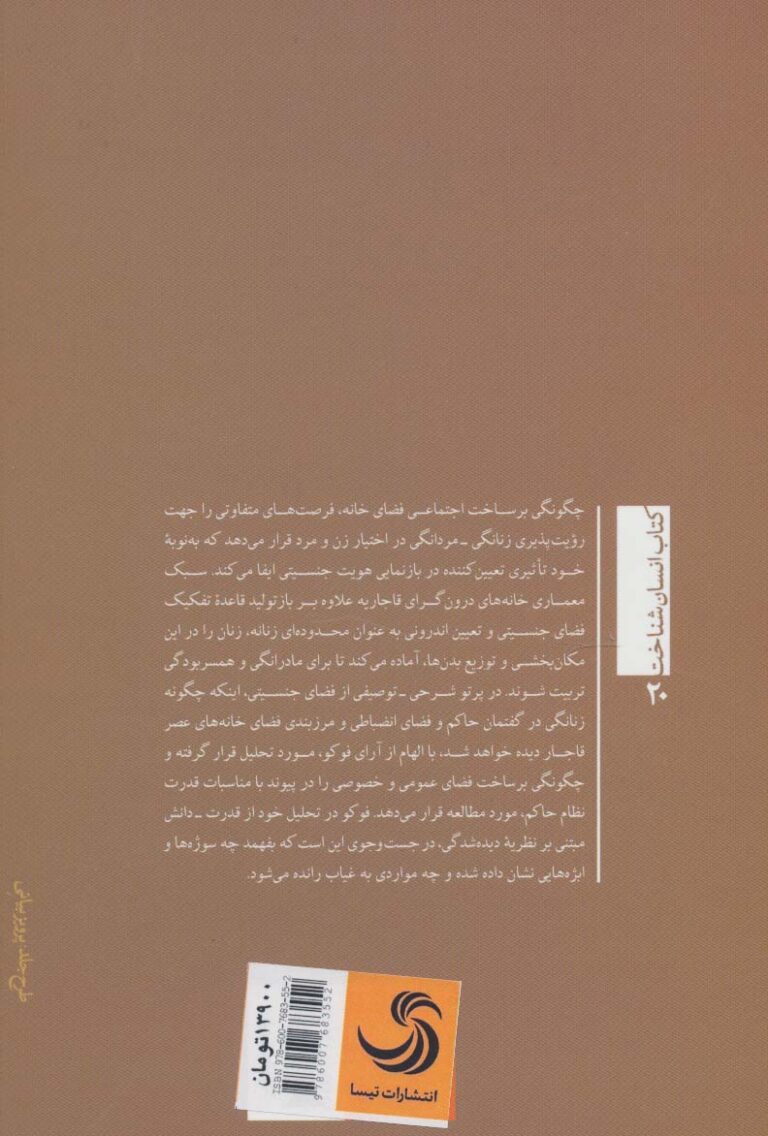 کتاب انسان‌شناخت
۲۰
چگونگی برساخت اجتماعی فضای خانه، فرصت‌های متفاوتی را جهت
رؤیت‌پذیری زنانگی ـ مردانگی در اختیار زن و مرد قرار می‌دهد که به‌نوبهٔ
خود تأثیری تعیین‌کننده در بازنمایی هویت جنسیتی ایفا می‌کند. سبک
معماری خانه‌های درون‌گرای قاجاریه علاوه بر بازتولید قاعدهٔ تفکیک
فضای جنسیتی و تعیین اندرونی به عنوان محدوده‌ای زنانه، زنان را در این
مکان‌بخشی و توزیع بدن‌ها، آماده می‌کند تا برای مادرانگی و همسربودگی
تربیت شوند. در پرتو شرحی ـ توصیفی از فضای جنسیتی، اینکه چگونه
زنانگی در گفتمان حاکم و فضای انضباطی و مرزبندی فضای خانه‌های عصر
قاجار دیده خواهد شد، با الهام از آرای فوکو، مورد تحلیل قرار گرفته و
چگونگی برساخت فضای عمومی و خصوصی را در پیوند با مناسبات قدرت
نظام حاکم، مورد مطالعه قرار می‌دهد. فوکو در تحلیل خود از قدرت ـ دانش
مبتنی بر نظریهٔ دیده‌شدگی، در جست‌وجوی این است که بفهمد چه سوژه‌ها و
ابژه‌هایی نشان داده شده و چه مواردی به غیاب رانده می‌شود.
طرح جلد: پرویز بیانی
انتشارات تیسا
ISBN 978-600-7683-55-2
9786007683552
۱۳۹۰۰ تومان